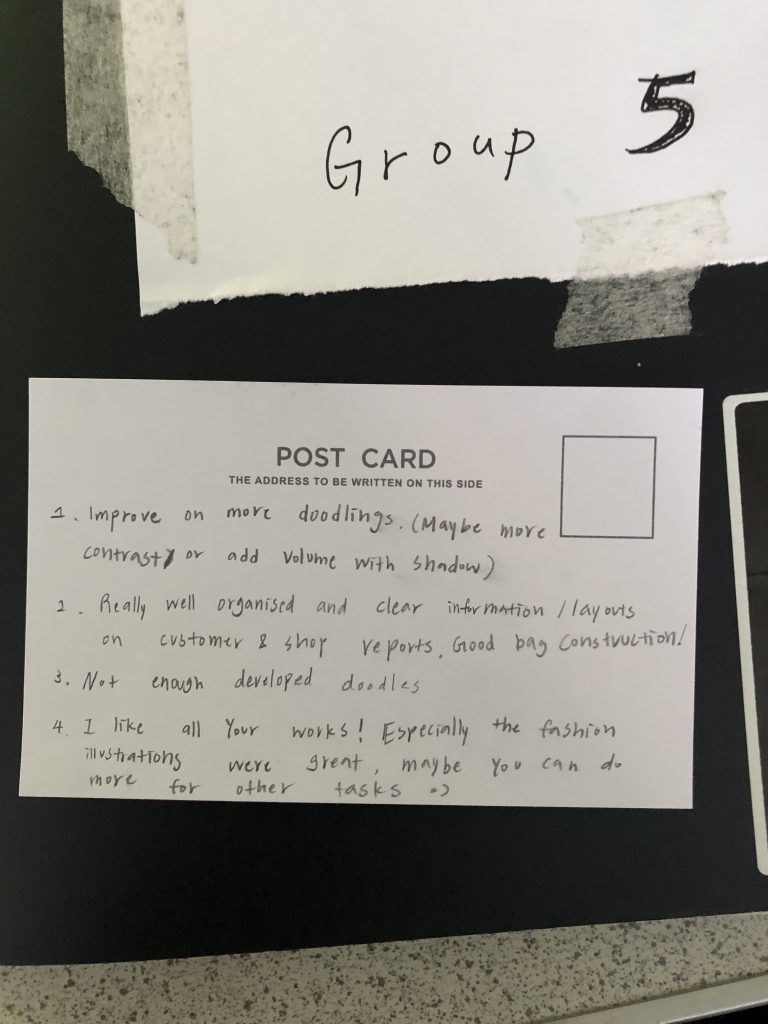 Group 5
POST CARD
THE ADDRESS TO BE WRITTEN ON THIS SIDE
1. Improve on more doodlings. (Maybe more
contrast, or add volume with shadow)
2. Really well organised and clear information / layouts
on customer & shop reports. Good bag construction!
3. Not enough developed doodles
4. I like all your works! Especially the fashion
illustrations were great, maybe you can do
more for other tasks =)